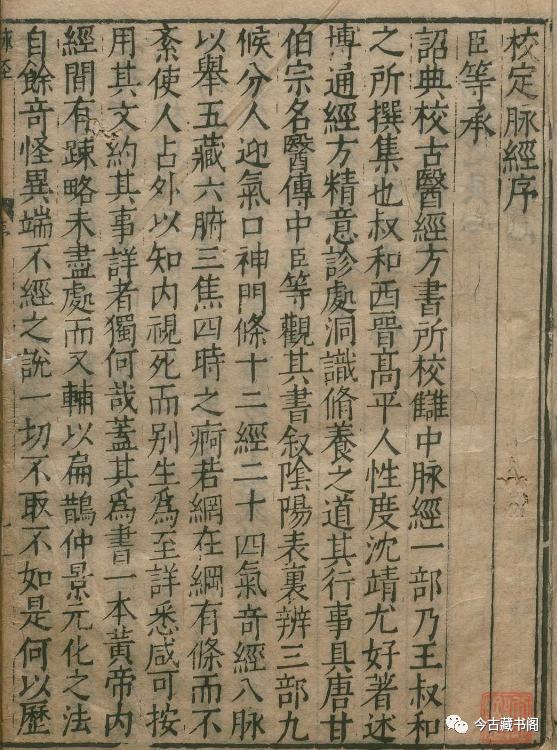 校定脉經序
臣等承
詔典校古醫經方書所校讎中脉經一部乃王叔和
之所撰集也叔和西晉髙平人性度沈靖尤好著述
博通經方精意診處洞識脩養之道其行事具唐甘
伯宗名醫傳中臣等觀其書叙陰陽表裏辨三部九
候分人迎氣口神門條十二經二十四氣奇經八脉
以舉五藏六腑三焦四時之痾若網在綱有條而不
紊使人占外以知内視死而别生爲至詳悉咸可按
用其文約其事詳者獨何哉蓋其爲書一本黃帝内
經間有踈略未盡處而又輔以扁鵲仲景元化之法
自餘奇怪異端不經之說一切不取不如是何以歷
今古藏书阁